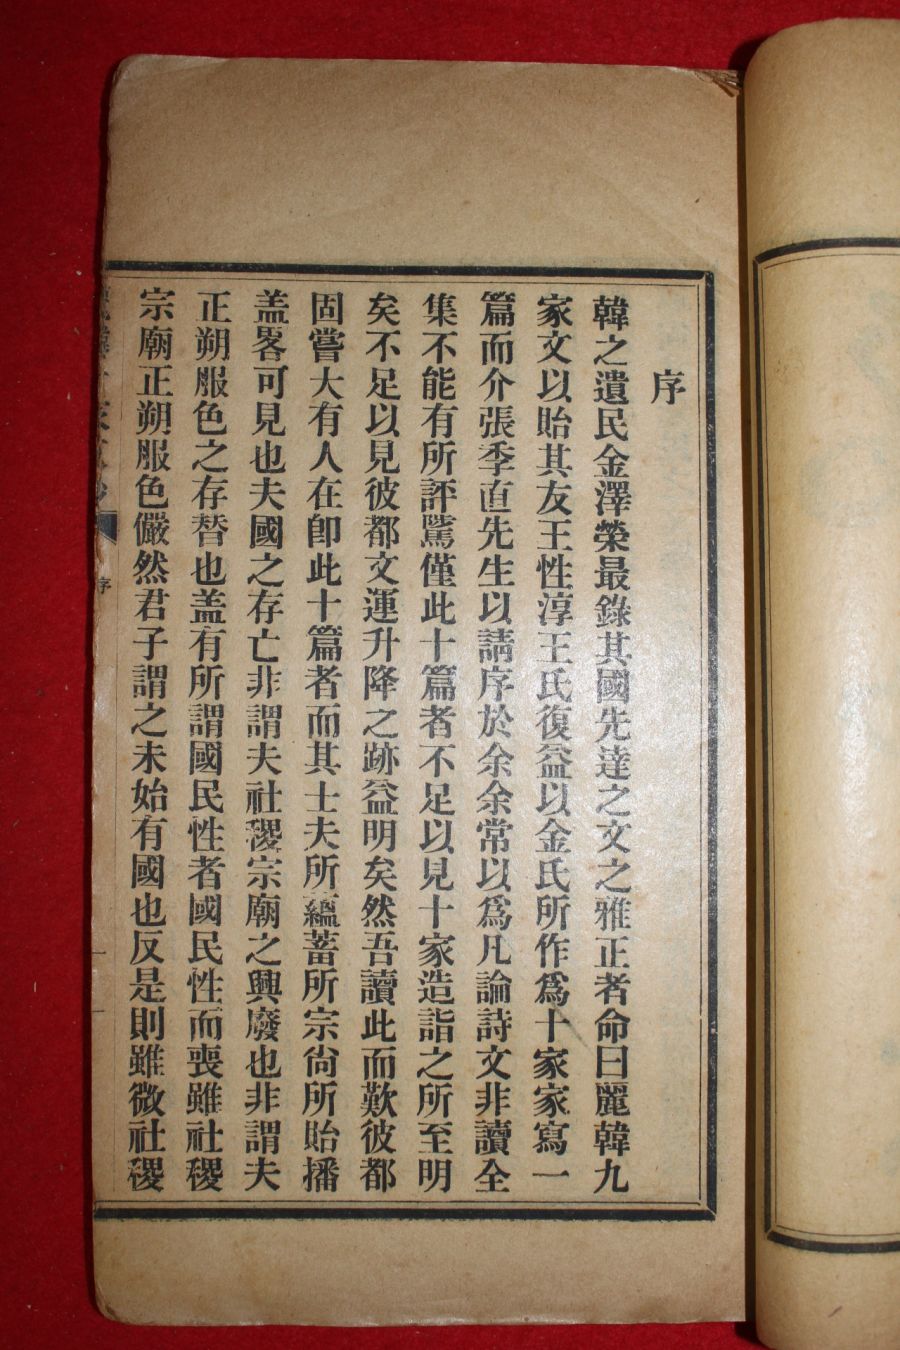 序
韓之遺民金澤榮最錄其國先達之文之雅正者命曰麗韓九
家文以貽其友王性淳王氏復益以金氏所作爲十家家寫一
篇而介張季直先生以請序於余余常以爲凡論詩文非讀全
集不能有所評騭僅此十篇者不足以見十家造詣之所至明
矣不足以見彼都文運升降之跡益明矣然吾讀此而歎彼都
固嘗大有人在卽此十篇者而其士夫所蘊蓄所宗尙所貽播
盖畧可見也夫國之存亡非謂夫社稷宗廟之興廢也非謂夫
正朔服色之存替也盖有所謂國民性者國民性而喪雖社稷
宗廟正朔服色儼然君子謂之未始有國也反是則雖微社稷
序